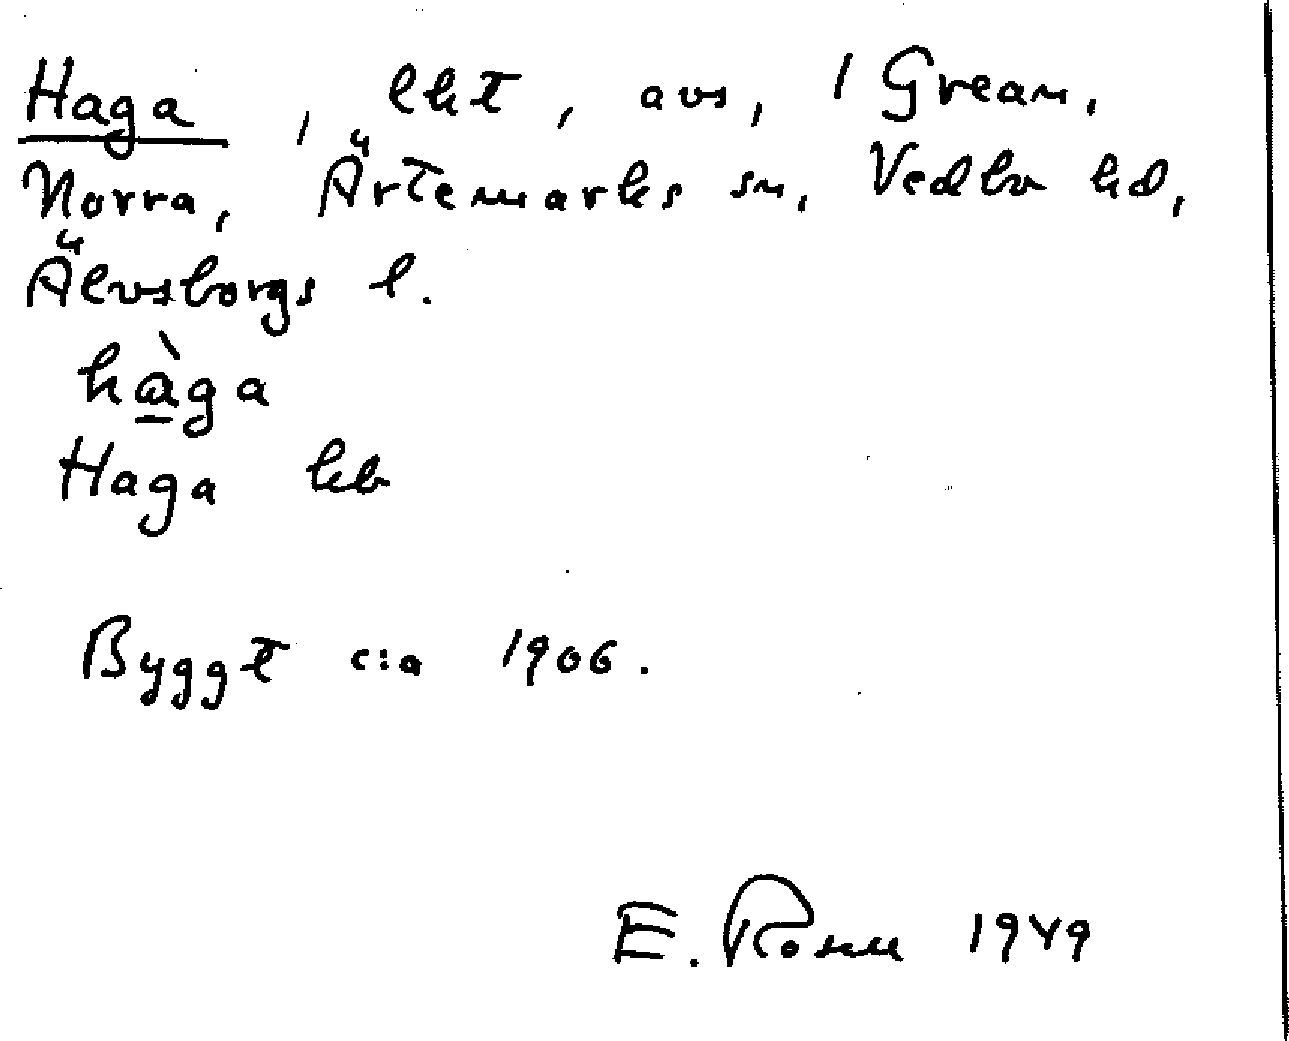 Haga, lht, avs, 1 Grean,
Norra, Ärtemarks sn, Vedbo hd,
Älvsborgs l.
hàga
Haga
Byggt c:a 1906.
E. Rosell 1949